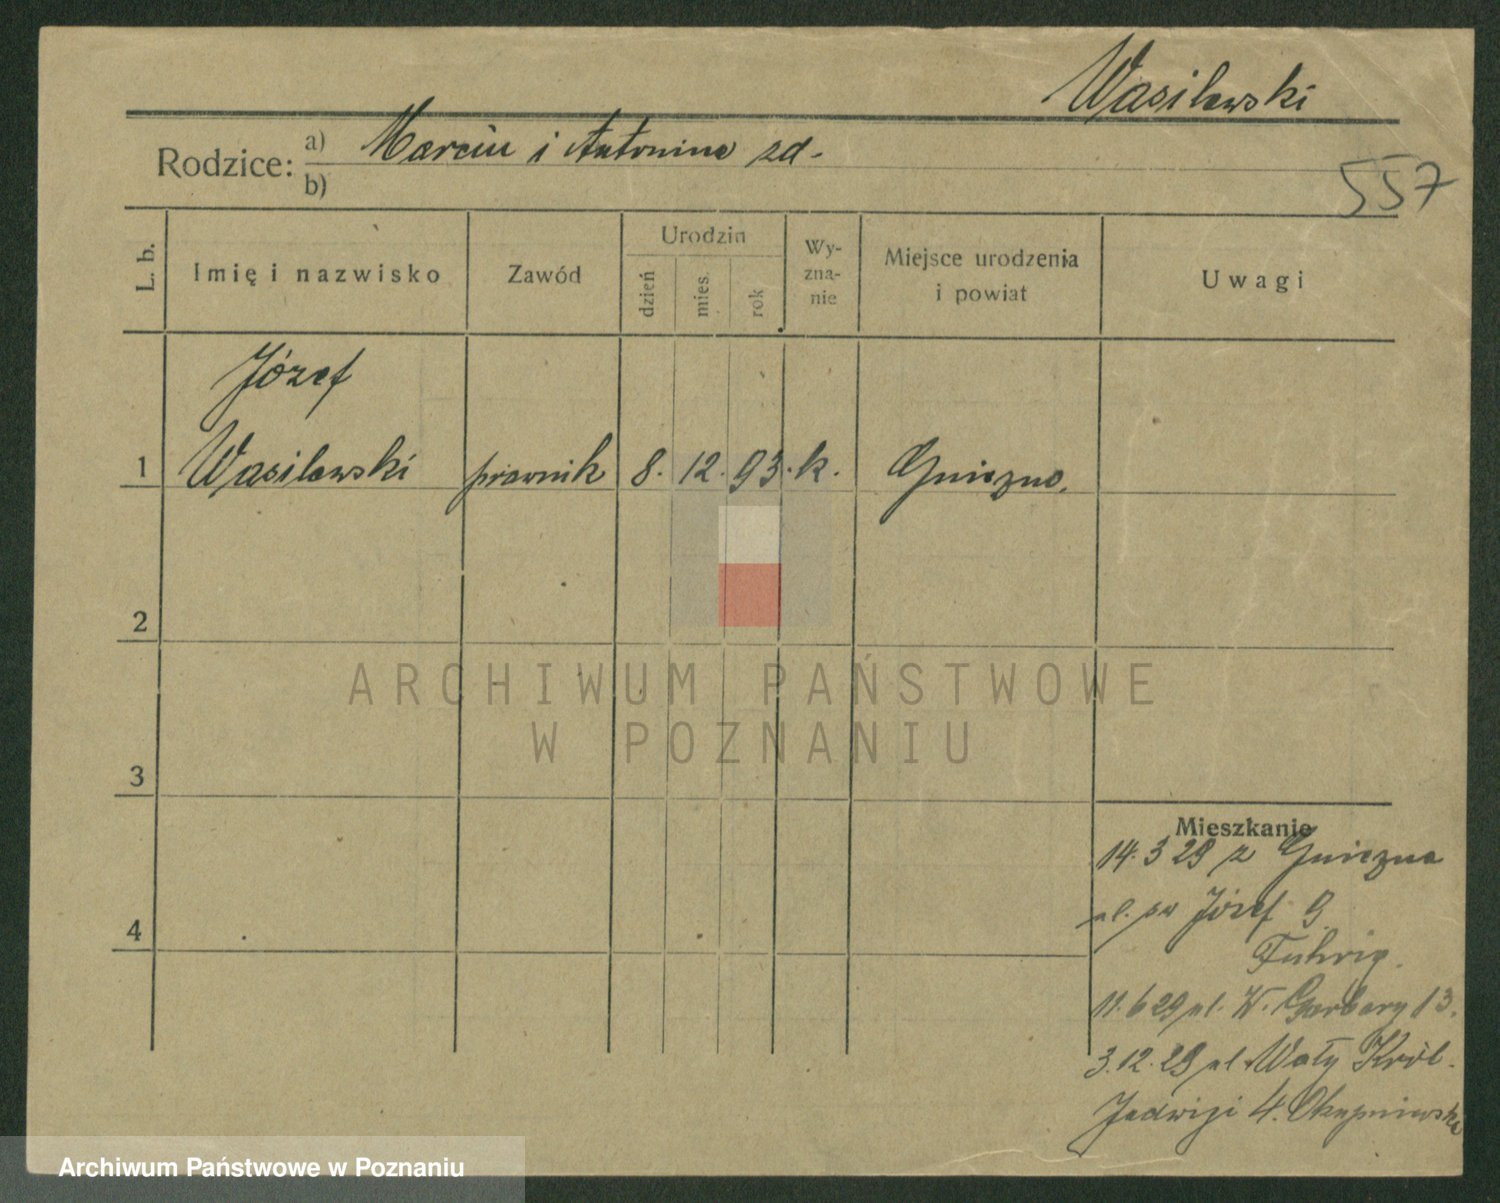 Wasilewski
Rodzice: a) Marcin i Antonina zd.
b)
557
L. b.
Imię i nazwisko
Zawód
Urodzin
dzień
mies.
rok
Wy-
zna-
nie
Miejsce urodzenia
i powiat
Uwagi
Józef
1 Wasilewski prawnik 8. 12. 93. k. Gniezno.
2
3
4
ARCHIWUM PAŃSTWOWE
W POZNANIU
Mieszkanie
14.3 29 z Gniezna
ul. św Józef 9
11.6 29 ul. W. Garbary 13.
3.12.29 ul. Wały Król.
Jadwigi 4.
Archiwum Państwowe w Poznaniu